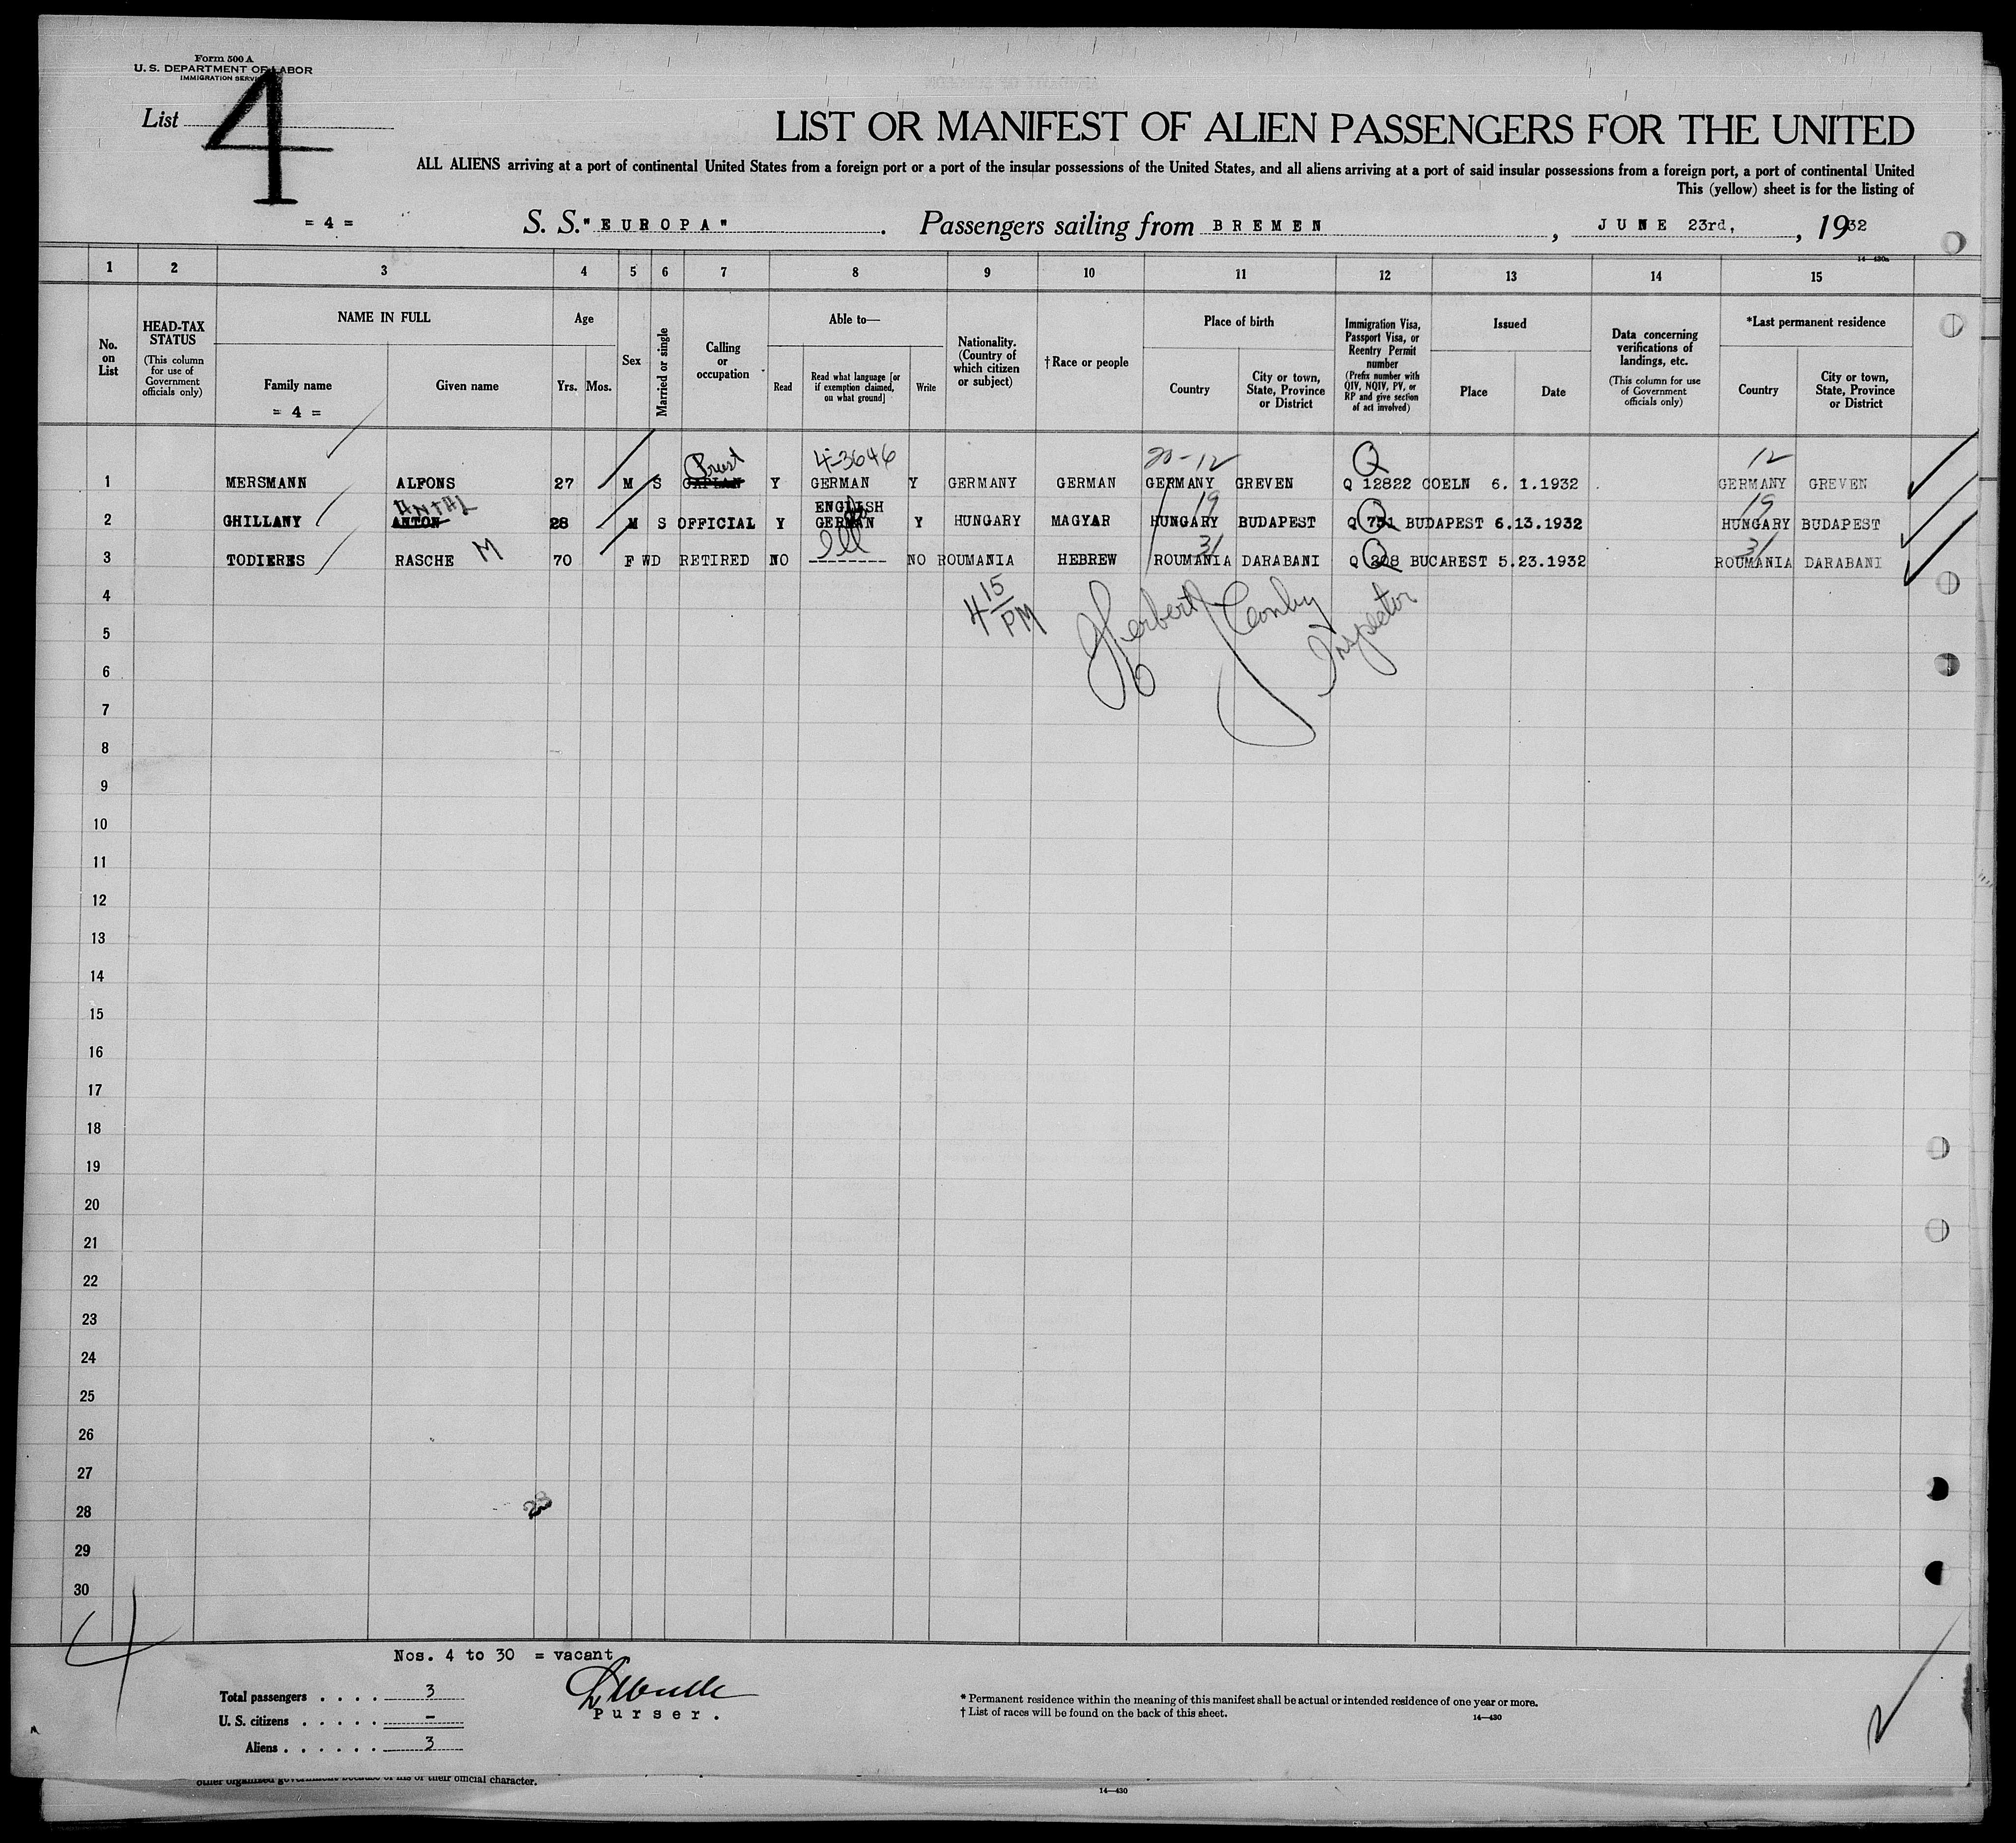 Form 500 A
U. S. DEPARTMENT OF LABOR
IMMIGRATION SERVICE
List 4
LIST OR MANIFEST OF ALIEN PASSENGERS FOR THE UNITED
ALL ALIENS arriving at a port of continental United States from a foreign port or a port of the insular possessions of the United States, and all aliens arriving at a port of said insular possessions from a foreign port, a port of continental United
This (yellow) sheet is for the listing of
= 4 = S. S. "EUROPA" . Passengers sailing from BREMEN , JUNE 23rd, , 1932
14—430a
1 2 3 4 5 6 7 8 9 10 11 12 13 14 15
No. on List
HEAD-TAX STATUS (This column for use of Government officials only)
NAME IN FULL
Family name
= 4 =
Given name
Age
Yrs. Mos.
Sex
Married or single
Calling or occupation
Able to—
Read
Read what language [or if exemption claimed, on what ground]
Write
Nationality. (Country of which citizen or subject)
† Race or people
Place of birth
Country
City or town, State, Province or District
Immigration Visa, Passport Visa, or Reentry Permit number (Prefix number with QIV, NQIV, PV, or RP and give section of act involved)
Issued
Place
Date
Data concerning verifications of landings, etc. (This column for use of Government officials only)
*Last permanent residence
Country
City or town, State, Province or District
Priest 4-3646 20-12 Q 12
1 MERSMANN ALFONS 27 M S CAPLAN Y GERMAN Y GERMANY GERMAN GERMANY GREVEN Q 12822 COELN 6. 1.1932 GERMANY GREVEN
ANTAL ENGLISH 19 19
2 GHILLANY ANTON 28 M S OFFICIAL Y GERMAN Y HUNGARY MAGYAR HUNGARY BUDAPEST Q 751 BUDAPEST 6.13.1932 HUNGARY BUDAPEST
M Ill 31 Q 31
3 TODIERES RASCHE 70 F WD RETIRED NO -------- NO ROUMANIA HEBREW ROUMANIA DARABANI Q 208 BUCAREST 5.23.1932 ROUMANIA DARABANI
4
4 15/PM Herbert Conby Inspector
5
6
7
8
9
10
11
12
13
14
15
16
17
18
19
20
21
22
23
24
25
26
27
28
29
30
4
Nos. 4 to 30 = vacant
Total passengers . . . . 3
U. S. citizens . . . . . –
Aliens . . . . . . 3
Purser.
* Permanent residence within the meaning of this manifest shall be actual or intended residence of one year or more.
† List of races will be found on the back of this sheet.
14—430
other organized government because of his or their official character.
14—430